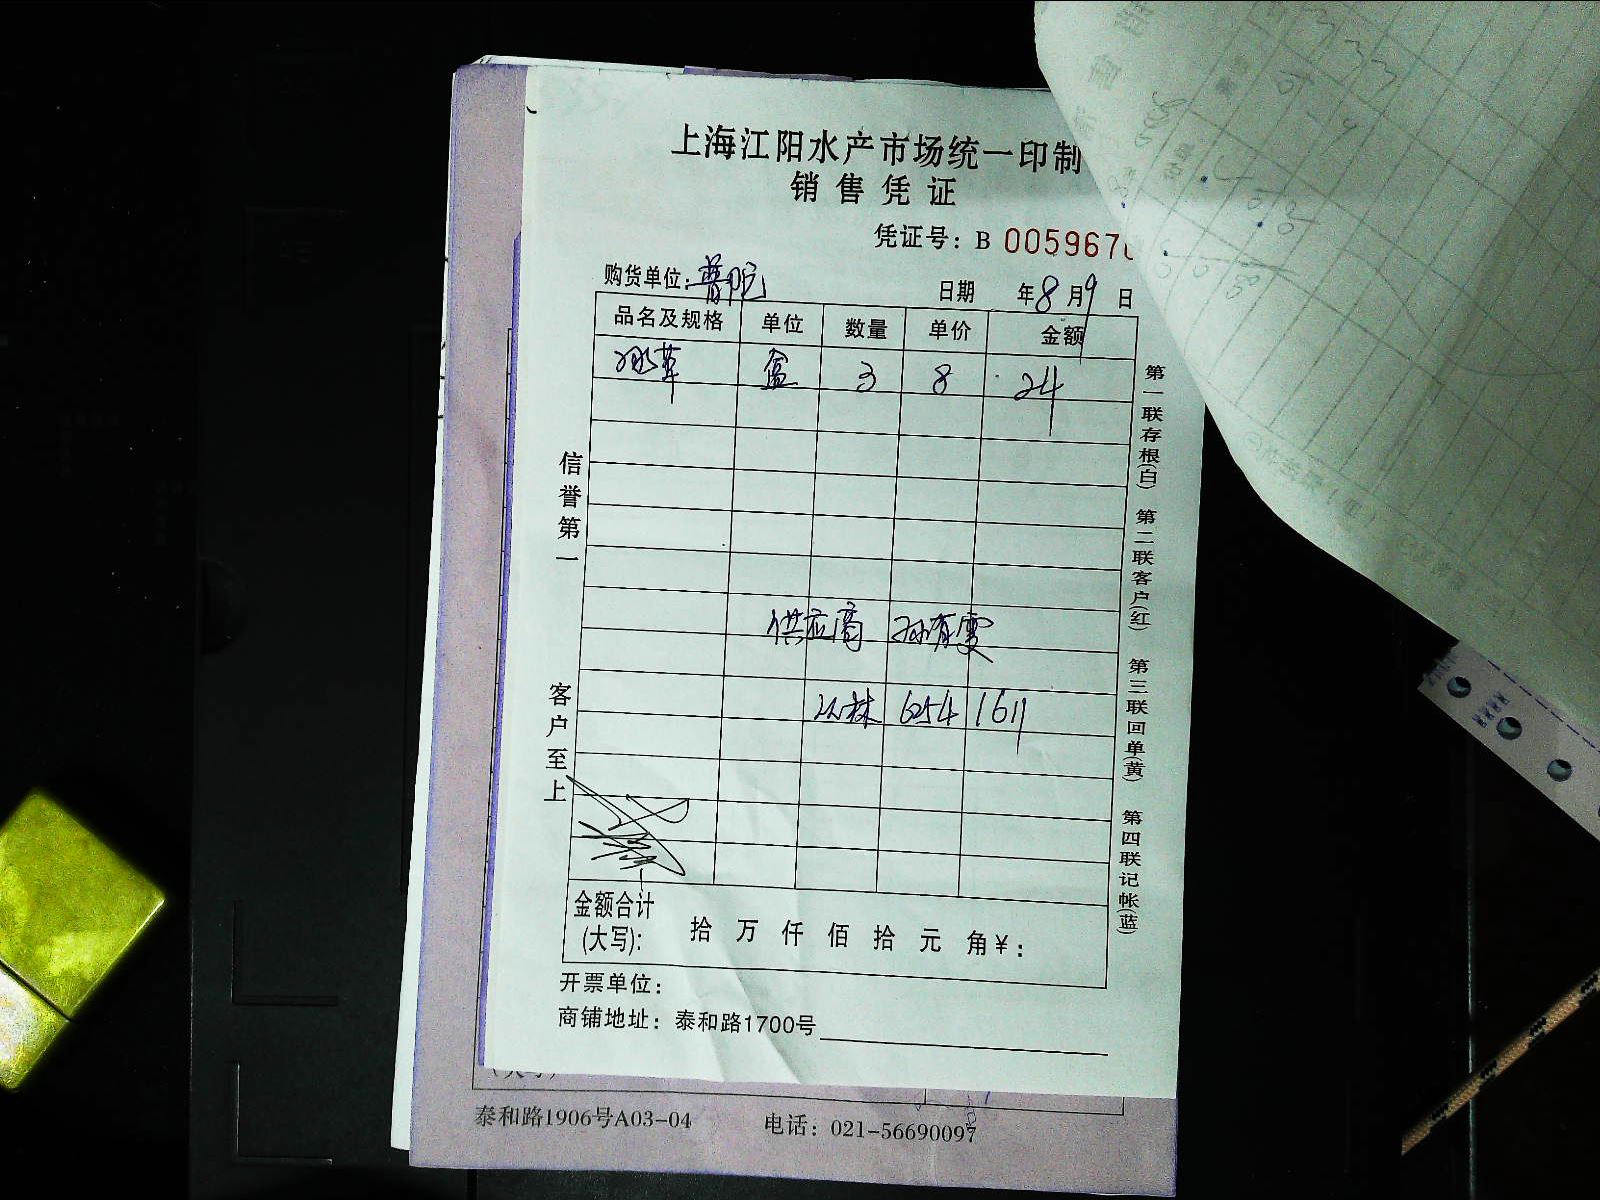 上海江阳水产市场统一印制
销售凭证
凭证号：B 0059670
购货单位：普陀 日期 年8月9日
品名及规格 单位 数量 单价 金额
盒 3 8 24
信誉第一
客户至上
供应商 孙有雯
6254 1611
第一联存根(白) 第二联客户(红) 第三联回单(黄) 第四联记帐(蓝)
金额合计
(大写)： 拾 万 仟 佰 拾 元 角¥：
开票单位：
商铺地址：泰和路1700号
泰和路1906号A03-04 电话：021-56690097